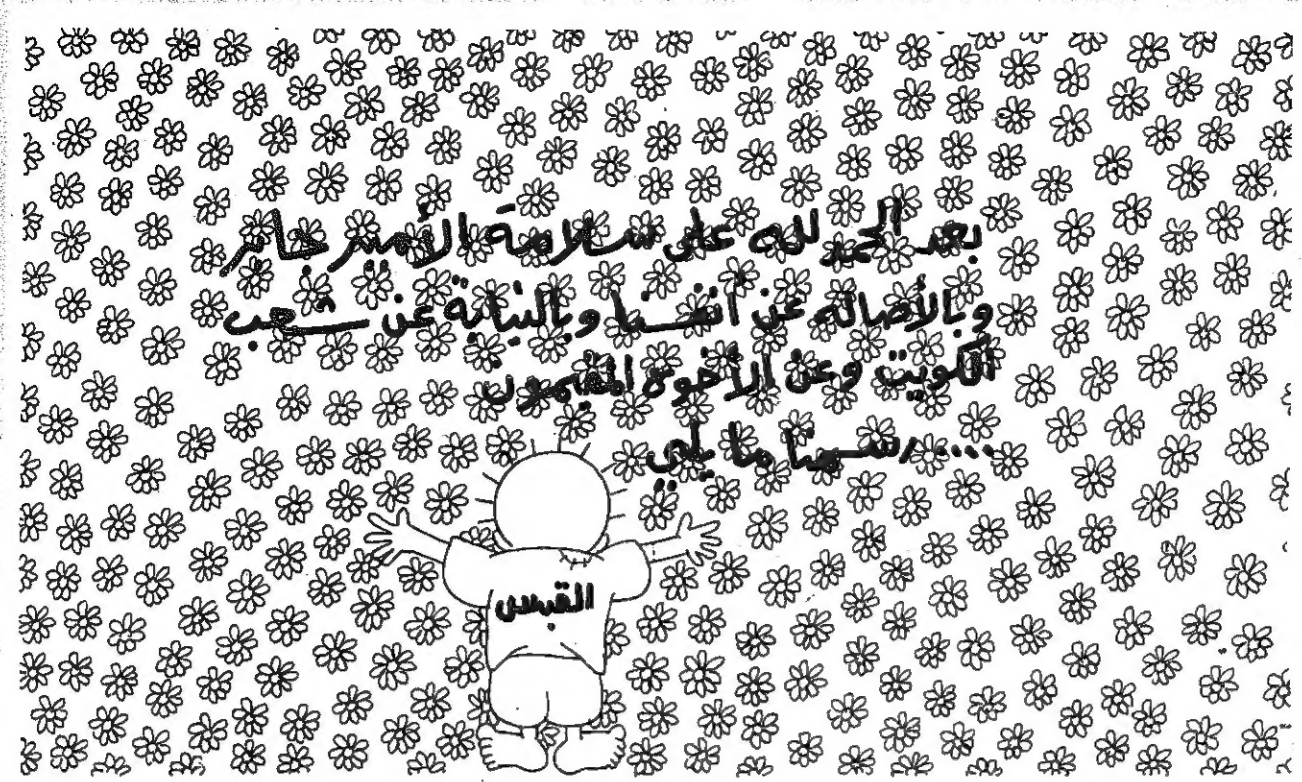 بعد الحمد لله على سلامة الأمير جابر
وبالأصاله عن أنفسنا وبالنيابة عن شعب
الكويت وعن الأخوة المقيمون
.... رسمنا ما يلي
القبس